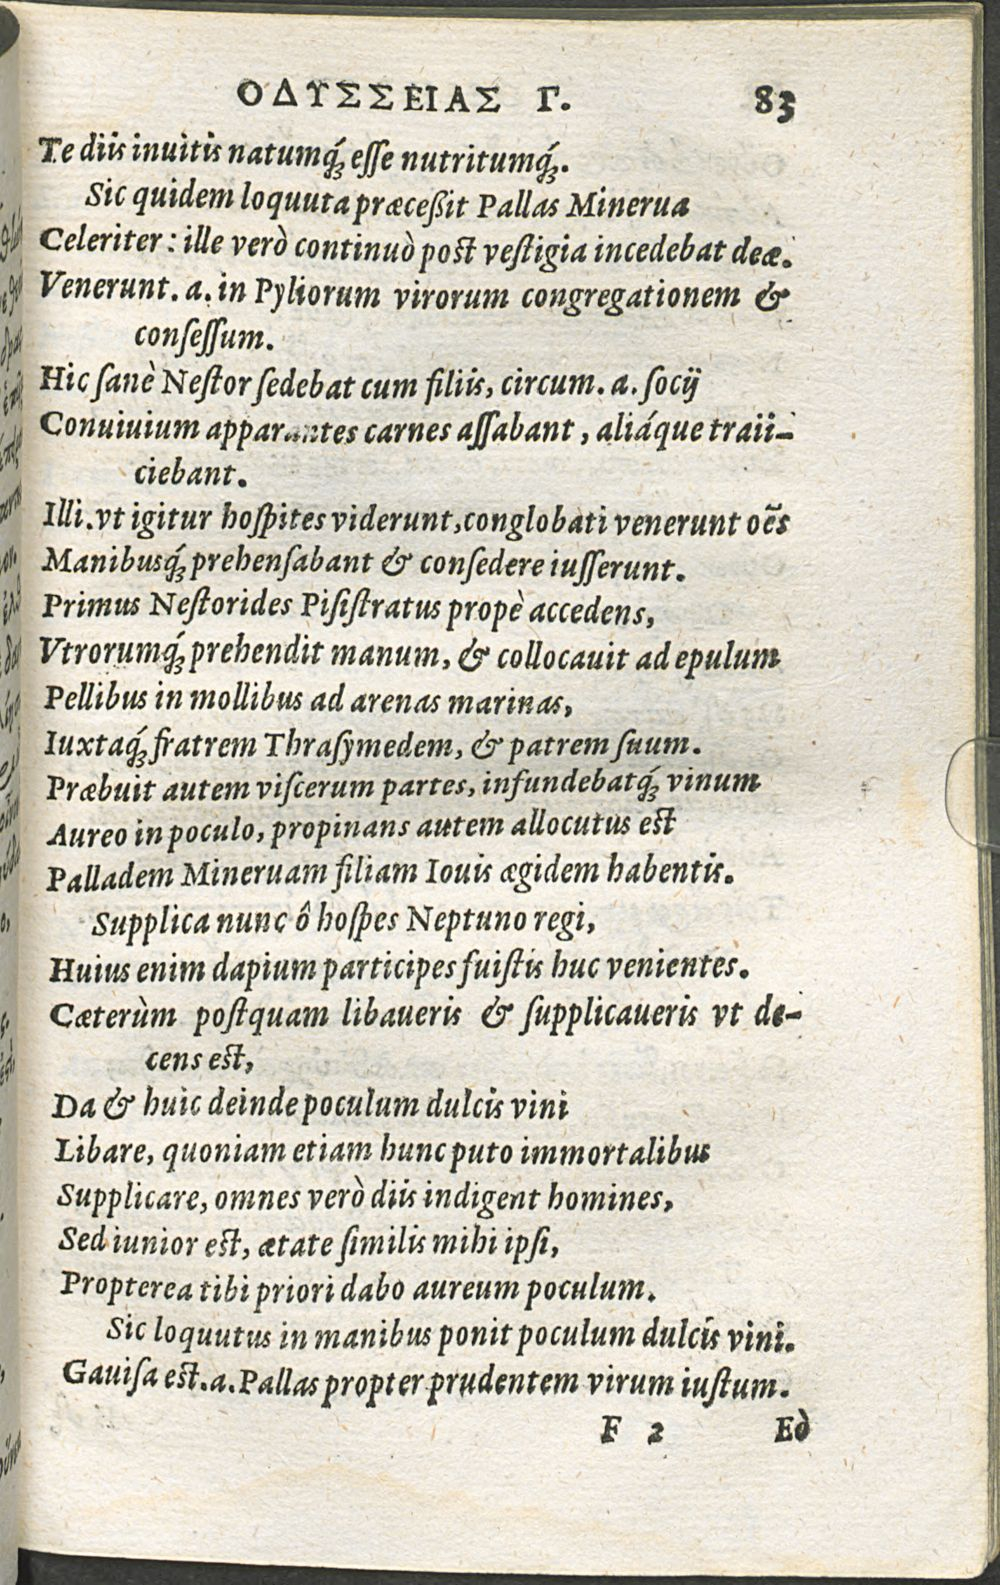 ΟΔΥΣΣΕΙΑΣ Γ. 83
Te diis inuitis natumq́; esse nutritumq́;.
Sic quidem loquuta præceßit Pallas Minerua
Celeriter: ille verò continuò post vestigia incedebat deæ.
Venerunt. a. in Pyliorum virorum congregationem &
consessum.
Hic sanè Nestor sedebat cum filiis, circum. a. socij
Conuiuium apparantes carnes assabant, aliáque traii-
ciebant.
Illi. vt igitur hospites viderunt, conglobati venerunt oēs
Manibusq́; prehensabant & consedere iusserunt.
Primus Nestorides Pisistratus propè accedens,
Vtrorumq́; prehendit manum, & collocauit ad epulum
Pellibus in mollibus ad arenas marinas,
Iuxtaq́; fratrem Thrasymedem, & patrem suum.
Præbuit autem viscerum partes, infundebatq́; vinum
Aureo in poculo, propinans autem allocutus est
Palladem Mineruam filiam Iouis ægidem habentis.
Supplica nunc ô hospes Neptuno regi,
Huius enim dapium participes fuistis huc venientes.
Cæterùm postquam libaueris & supplicaueris vt de-
cens est,
Da & huic deinde poculum dulcis vini
Libare, quoniam etiam hunc puto immortalibus
Supplicare, omnes verò diis indigent homines,
Sed iunior est, ætate similis mihi ipsi,
Propterea tibi priori dabo aureum poculum.
Sic loquutus in manibus ponit poculum dulcis vini.
Gauisa est. a. Pallas propter prudentem virum iustum.
F 2 Eò